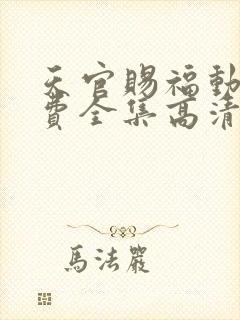 天官賜福動
費全集高清
馬法嚴